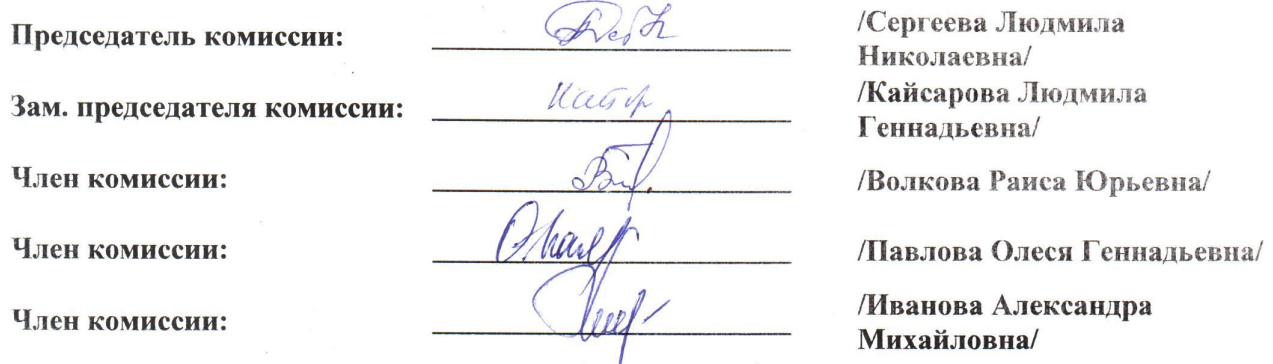 Председатель комиссии: /Сергеева Людмила
Николаевна/
Зам. председателя комиссии: /Кайсарова Людмила
Геннадьевна/
Член комиссии: /Волкова Раиса Юрьевна/
Член комиссии: /Павлова Олеся Геннадьевна/
Член комиссии: /Иванова Александра
Михайловна/